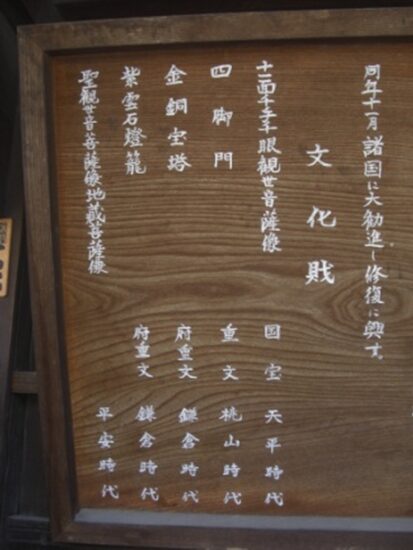 同年十一月諸国に大勧進し修復に興す。
文化財
十一面千手千眼観世音薩像 国宝 天平時代
四脚門 重文 桃山時代
金銅宝塔 府重文 鎌倉時代
紫雲石燈籠 府重文 鎌倉時代
聖観世音菩薩像地蔵菩薩像 平安時代